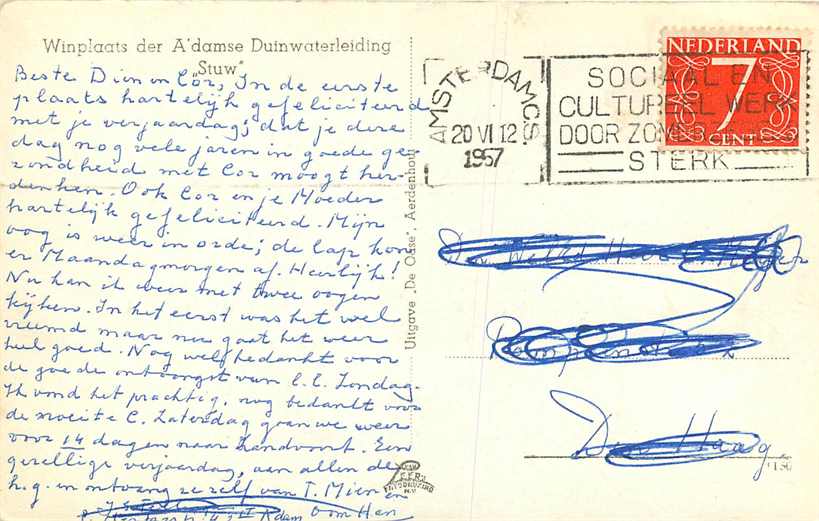 Winplaats der A'damse Duinwaterleiding
"Stuw"
Beste Dien en Cor, In de eerste
plaats hartelijk gefeliciteerd
met je verjaardag; dat je deze
dag nog vele jaren in goede ge-
zondheid met Cor moogt her-
denken. Ook Cor en je Moeder
hartelijk gefeliciteerd. Mijn
oog is weer in orde; de lap kon
er Maandagmorgen af. Heerlijk!
Nu kan ik weer met twee oogen
kijken. In het eerst was het wel
vreemd maar nu gaat het weer
heel goed. Nog wel bedankt voor
de goede ontvangst van l.l. Zondag.
Ik vond het prachtig, nog bedankt voor
de moeite C. Zaterdag gaan we weer
voor 14 dagen naar Zandvoort. Een
gezellige verjaardag, aan allen de
h.g. en ontvang ze zelf van T. Mien en
Oom Han
Uitgave „De Oase", Aerdenhout
AMSTERDAM C.S.
20 VI 12
1957
SOCIAAL EN
CULTUREEL WERK
DOOR ZOMERZEGELS
STERK
NEDERLAND
7
CENT
Den Haag